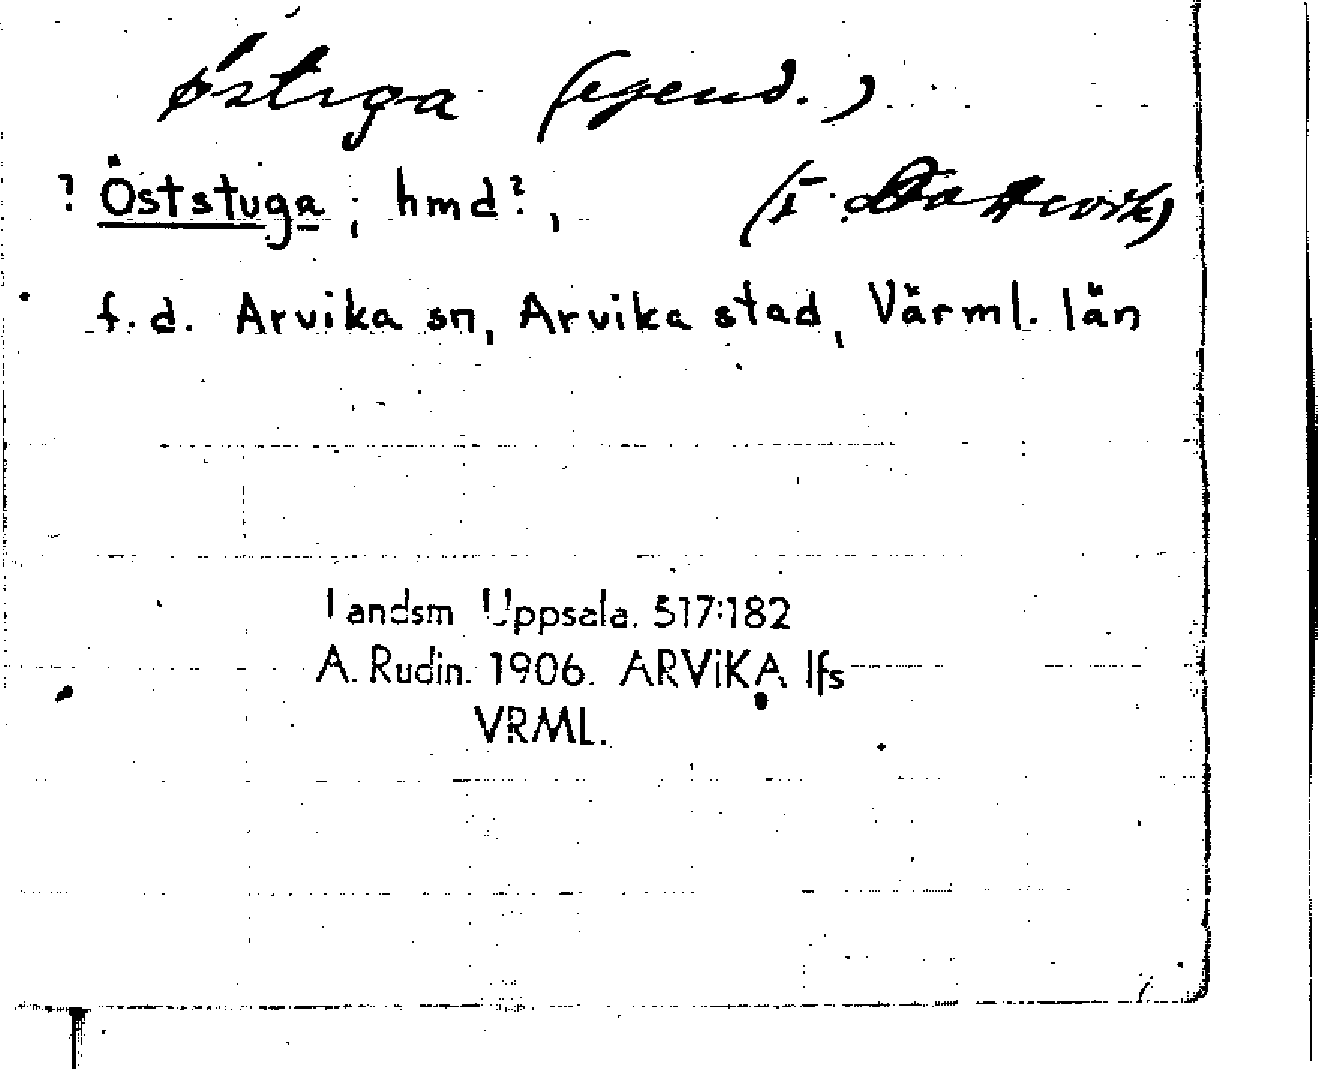 östuga (egend.)
? Öststuga; hmd?, (I. Dottevik)
f.d. Arvika sn, Arvika stad, Värml. län
Landsm Uppsala. 517:182
A. Rudin. 1906. ARVIKA lfs
VRML.